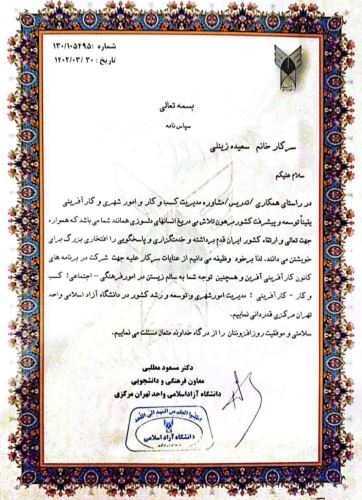 شماره :۱۳۰/۱۰۵۴۹۵
تاریخ : ۱۴۰۲/۰۳/۳۰
بسمه تعالی
سپاس نامه
سرکار خانم سعیده زینلی
سلام علیکم
در راستای همکاری /تدریس/مشاوره مدیریت کسب و کار و امور شهری و کارآفرینی
یقیناً توسعه و پیشرفت کشور مرهون تلاش بی دریغ انسانهای دلسوزی همانند شما می باشد که همواره
جهت تعالی و ارتقاء کشور ایران قدم برداشته و خدمتگزاری و پاسخگویی را افتخاری بزرگ برای
خویشتن می دانند. لذا برخود وظیفه می دانیم از عنایات سرکار علیه جهت شرکت در برنامه های
کانون کارآفرینی آفرین و همچنین توجه شما به سالم زیستن در امورفرهنگی - اجتماعی؛ کسب
و کار - کارآفرینی ؛ مدیریت امورشهری و توسعه و رشد کشور در دانشگاه آزاد اسلامی واحد
تهران مرکزی قدردانی نماییم.
سلامتی و موفقیت روزافزونتان را از درگاه خداوند متعال مسئلت می نماییم.
دکتر مسعود مطلبی
معاون فرهنگی و دانشجویی
دانشگاه آزاداسلامی واحد تهران مرکزی
اطلبوا العلم من المهد الی اللحد
دانشگاه آزاد اسلامی